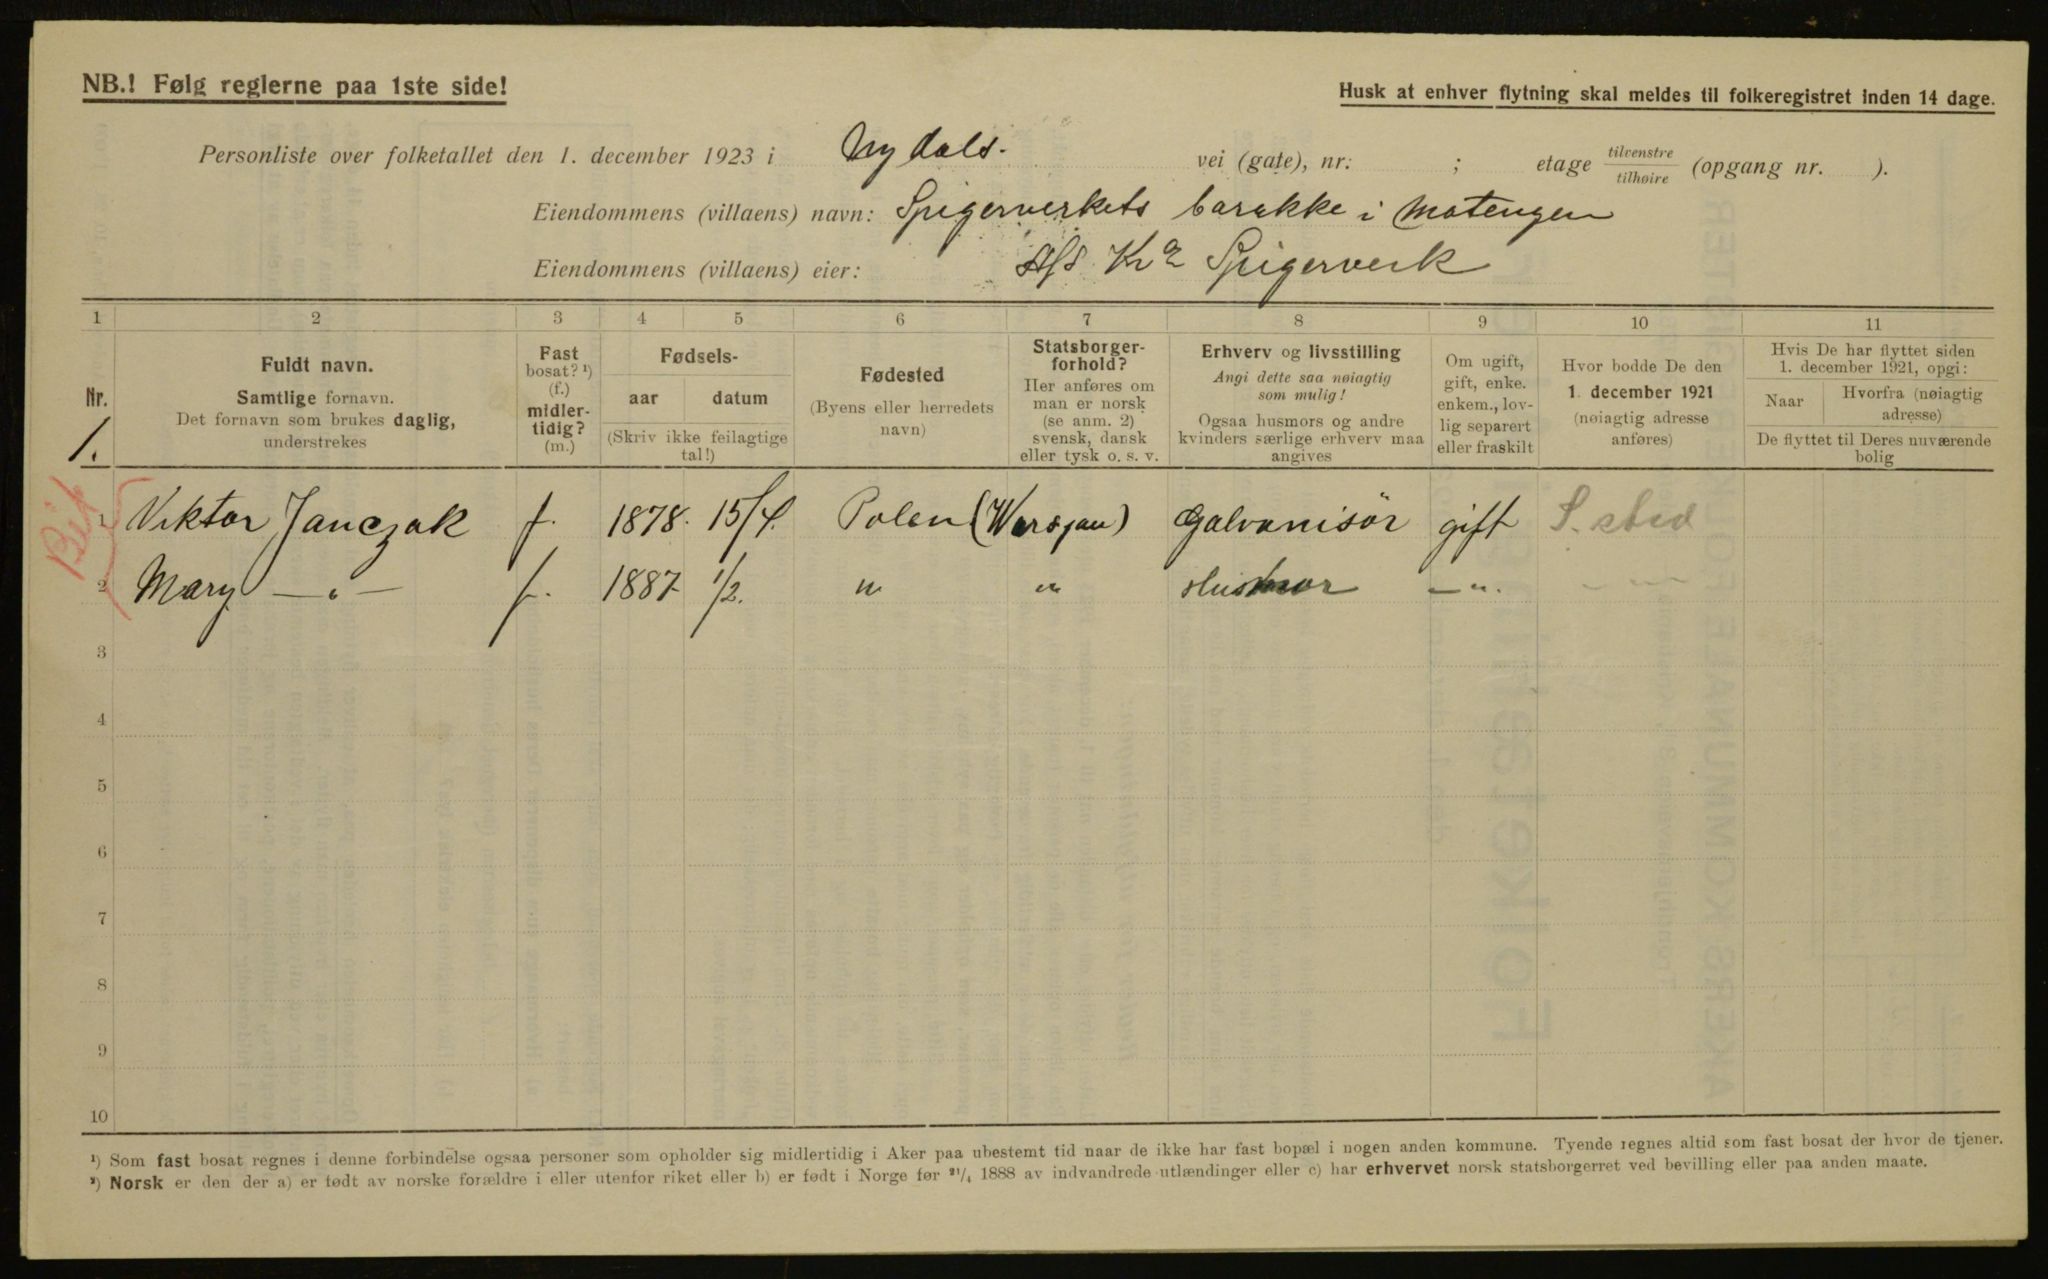 NB.! Følg reglerne paa 1ste side!
Husk at enhver flytning skal meldes til folkeregistret inden 14 dage.
Personliste over folketallet den 1. december 1923 i Nydals. vei (gate), nr: ; etage tilvenstre tilhøire (opgang nr. ).
Eiendommens (villaens) navn: Spigerverkets barakke i Matengen
Eiendommens (villaens) eier: A/S Kra Spigerverk
1 2 3 4 5 6 7 8 9 10 11
Nr.
1.
Fuldt navn.
Samtlige fornavn.
Det fornavn som brukes daglig,
understrekes
Fast
bosat? ¹)
(f.)
midler-
tidig?
(m.)
Fødsels-
aar datum
(Skriv ikke feilagtige
tal!)
Fødested
(Byens eller herredets
navn)
Statsborger-
forhold?
Her anføres om
man er norsk
(se anm. 2)
svensk, dansk
eller tysk o. s. v.
Erhverv og livsstilling
Angi dette saa nøiagtig
som mulig!
Ogsaa husmors og andre
kvinders særlige erhverv maa
angives
Om ugift,
gift, enke.
enkem., lov-
lig separert
eller fraskilt
Hvor bodde De den
1. december 1921
(nøiagtig adresse
anføres)
Hvis De har flyttet siden
1. december 1921, opgi:
Naar
Hvorfra (nøiagtig
adresse)
De flyttet til Deres nuværende
bolig
1 Viktor Janczak f. 1878. 15/4. Polen (Warsjau) Galvanisör gift S. sted
2 Mary — " — f. 1887 1/2. " " Husmor — ". — " —
3
4
5
6
7
8
9
10
¹) Som fast bosat regnes i denne forbindelse ogsaa personer som opholder sig midlertidig i Aker paa ubestemt tid naar de ikke har fast bopæl i nogen anden kommune. Tyende regnes altid som fast bosat der hvor de tjener.
²) Norsk er den der a) er født av norske forældre i eller utenfor riket eller b) er født i Norge før ²¹/₄ 1888 av indvandrede utlændinger eller c) har erhvervet norsk statsborgerret ved bevilling eller paa anden maate.